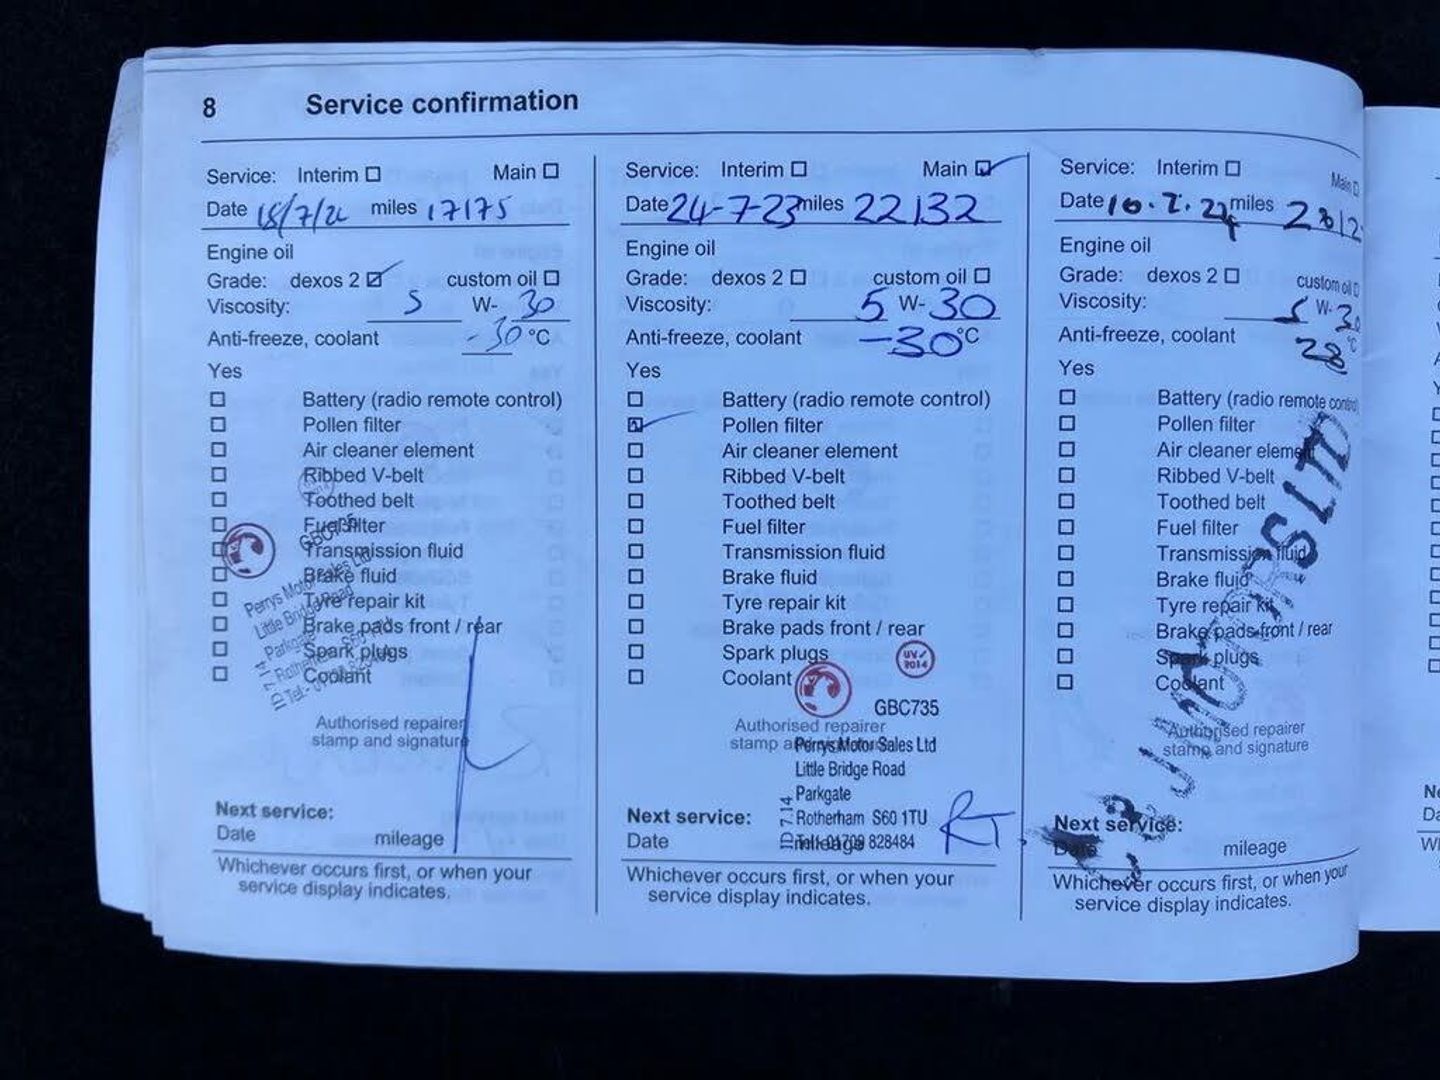 8 Service confirmation
Service: Interim Main
Date 18/7/2 miles 17175
Engine oil
Grade: dexos 2 custom oil
Viscosity: 5 W- 30
Anti-freeze, coolant -30 °C
Yes
Battery (radio remote control)
Pollen filter
Air cleaner element
Ribbed V-belt
Toothed belt
Fuel filter
Transmission fluid
Brake fluid
Tyre repair kit
Brake pads front / rear
Spark plugs
Coolant
GBC735
Perrys Motor Sales Ltd
Little Bridge Road
Parkgate
Rotherham S60 1TU
Authorised repairer
stamp and signature
Next service:
Date mileage
Whichever occurs first, or when your
service display indicates.
Service: Interim Main
Date 24-7-23 miles 22132
Engine oil
Grade: dexos 2 custom oil
Viscosity: 5 W- 30
Anti-freeze, coolant -30 °C
Yes
Battery (radio remote control)
Pollen filter
Air cleaner element
Ribbed V-belt
Toothed belt
Fuel filter
Transmission fluid
Brake fluid
Tyre repair kit
Brake pads front / rear
Spark plugs
Coolant
UV✓
2014
GBC735
Authorised repairer
stamp and
Perrys Motor Sales Ltd
Little Bridge Road
Parkgate
Rotherham S60 1TU
Tel: 01709 828484
ID 7.14
RT
Next service:
Date mileage
Whichever occurs first, or when your
service display indicates.
Service: Interim Main
Date 16.7.24 miles 2812
Engine oil
Grade: dexos 2 custom oil
Viscosity: 5 W- 30
Anti-freeze, coolant 28 °C
Yes
Battery (radio remote control)
Pollen filter
Air cleaner element
Ribbed V-belt
Toothed belt
Fuel filter
Transmission fluid
Brake fluid
Tyre repair kit
Brake pads front / rear
Spark plugs
Coolant
Authorised repairer
stamp and signature
Next service:
Date mileage
Whichever occurs first, or when your
service display indicates.